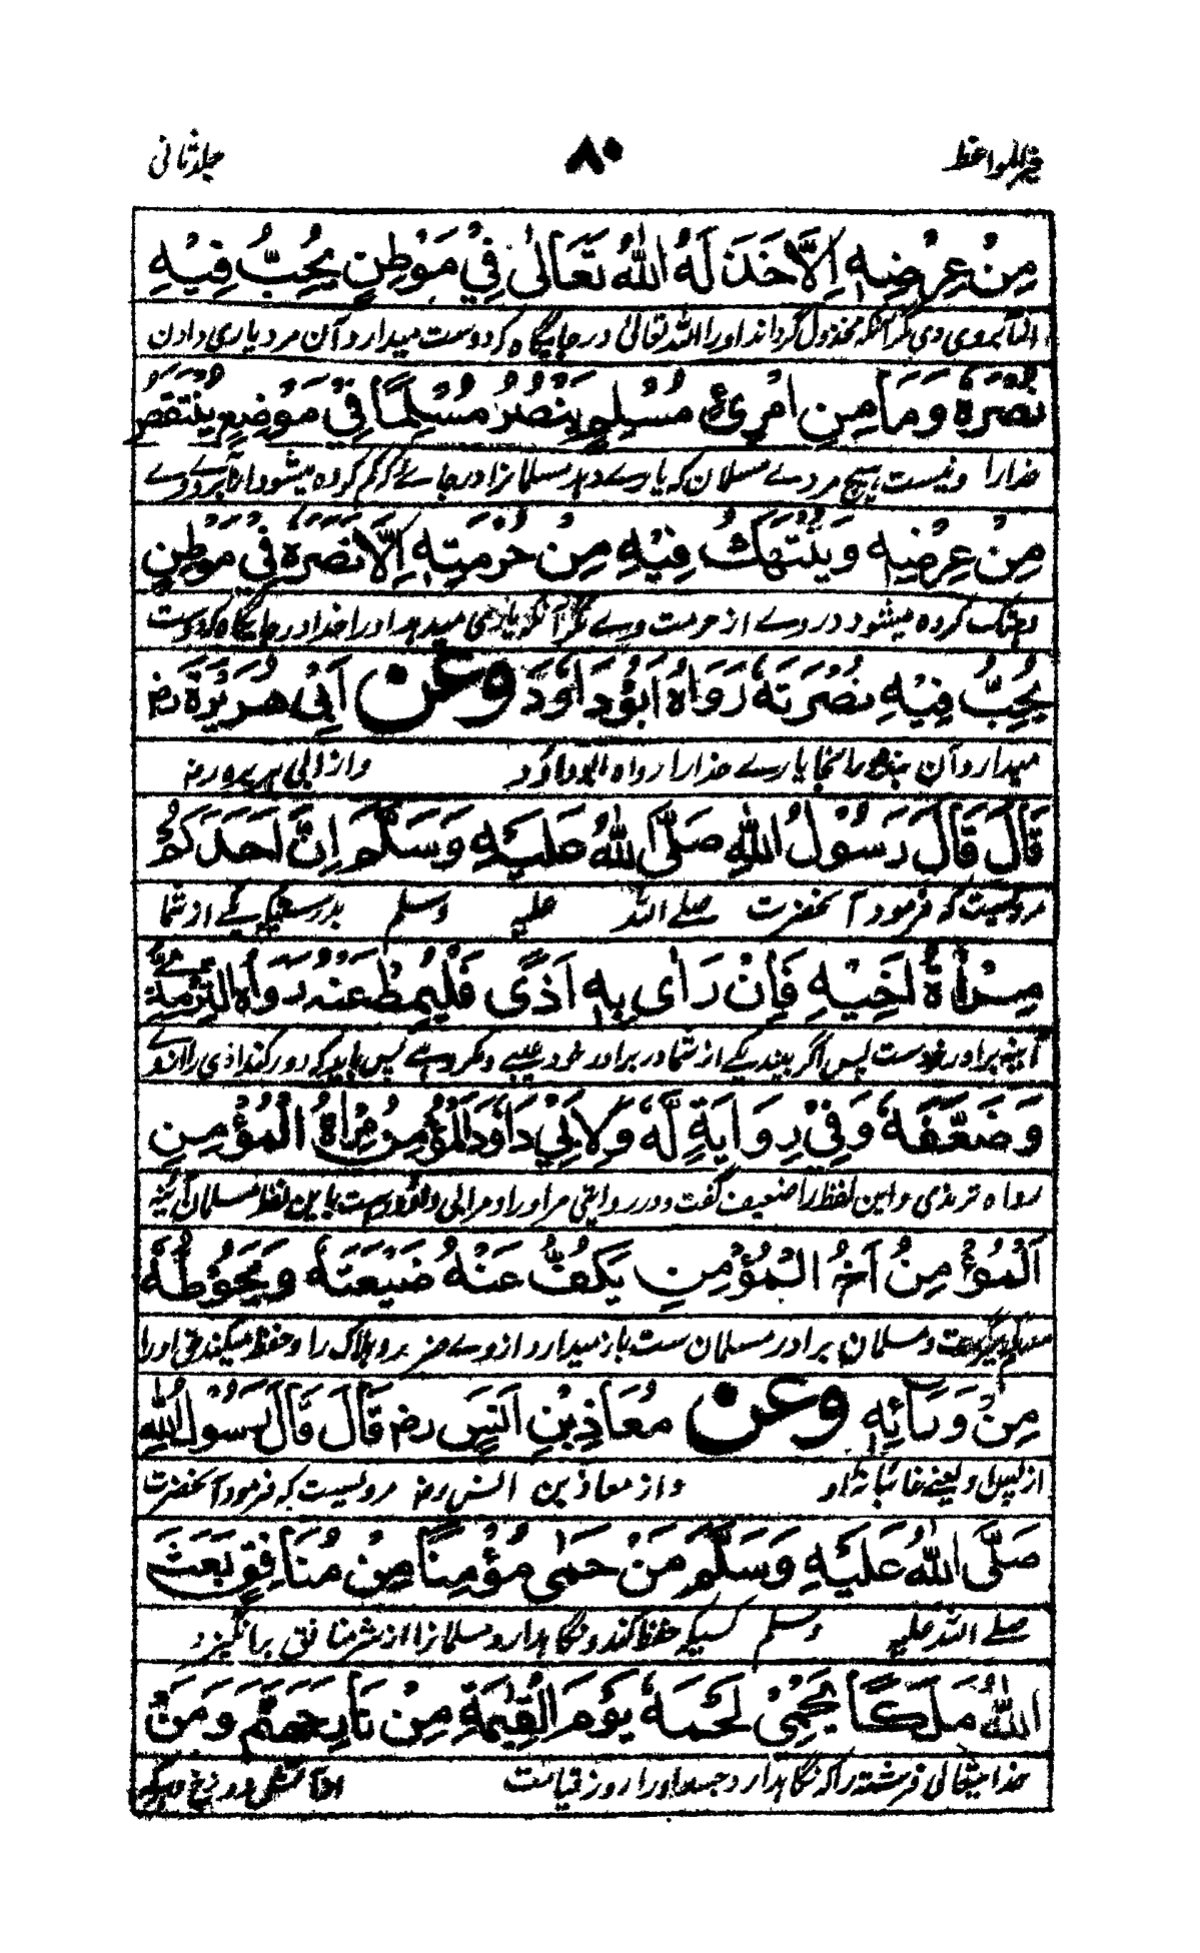 خیر المواعظ ۸۰ جلد ثانی
مِنْ عِرْضِهٖ اِلَّا خَذَلَهُ اللّٰهُ تَعَالٰی فِيْ مَوْطِنٍ يُحِبُّ فِيْهِ
از آبروی وی مگر آنکه مخذول گرداند اورا الله تعالیٰ در جایگاه که دوست میدارد آن مرد یاری دادن
نُصْرَتَهٗ وَمَا مِنِ امْرِیٍٔ مُسْلِمٍ يَنْصُرُ مُسْلِمًا فِيْ مَوْضِعٍ يُنْتَقَصُ
خدارا و نیست هیچ مردے مسلمان که یارے دهد مسلمانرا در جائے که کم کرده میشود از آبروے وے
مِنْ عِرْضِهٖ وَيُنْتَهَكُ فِيْهِ مِنْ حُرْمَتِهٖ اِلَّا نَصَرَهُ فِيْ مَوْطِنٍ
وهتک کرده میشود در وے از حرمت وے مگر آنکه یاری میدهد اورا خدا در جایگاه که دوست
يُحِبُّ فِيْهِ نُصْرَتَهٗ رَوَاهُ اَبُوْدَاوٗدَ وعن اَبِيْ هُرَيْرَةَ رض
میدارد آن بنده را آنجا یارے خدارا رواه ابوداؤد واز ابی هریره رض
قَالَ قَالَ رَسُوْلُ اللّٰهِ صَلَّی اللّٰهُ عَلَيْهِ وَسَلَّمَ اِنَّ اَحَدَكُمْ
مرویست که فرمود آنحضرت صلے الله علیه وسلم بدرستیکه یکے از شما
مِرْاٰةُ اَخِيْهِ فَاِنْ رَاٰی بِهٖ اَذًی فَلْيُمِطْ عَنْهُ رَوَاهُ التِّرْمِذِيُّ
آئینه برادر خودست پس اگر بیند یکے از شما در برادر خود عیبے ومکروهے پس باید که دور کند اذی را از وے
وَضَعَّفَهٗ وَفِيْ رِوَايَةٍ لَّهٗ وَلِاَبِيْ دَاوٗدَ الْمُؤْمِنُ مِرْاٰةُ الْمُؤْمِنِ
رواه ترمذی واین لفظ را ضعیف گفت ودر روایتی مر اورا ومر ابی داؤد راست باین لفظ مسلمان آئینه
اَلْمُؤْمِنُ اَخُ الْمُؤْمِنِ يَكُفُّ عَنْهُ ضَيْعَتَهٗ وَيَحُوْطُهٗ
ومسلمان برادر مسلمان ست باز میدارد از وے ضرر وهلاک را وحفظ میکند حق اورا
مِنْ وَرَائِهٖ وعن مُعَاذِ بْنِ اَنَسٍ رض قَالَ قَالَ رَسُوْلُ اللّٰهِ
از پس او یعنے غائبانه او واز معاذ بن انس رض مرویست که فرمود آنحضرت
صَلَّی اللّٰهُ عَلَيْهِ وَسَلَّمَ مَنْ حَمٰی مُؤْمِنًا مِنْ مُنَافِقٍ بَعَثَ
صلے الله علیه وسلم کسیکه حفظ کند ونگاهدارد مسلمانرا از شر منافق برانگیزد
اللّٰهُ مَلَكًا يَحْمِيْ لَحْمَهٗ يَوْمَ الْقِيٰمَةِ مِنْ نَارِ جَهَنَّمَ وَمَنْ
خدایتعالی فرشته را که نگاهدارد جسد اورا روز قیامت از آتش دوزخ وهرکه